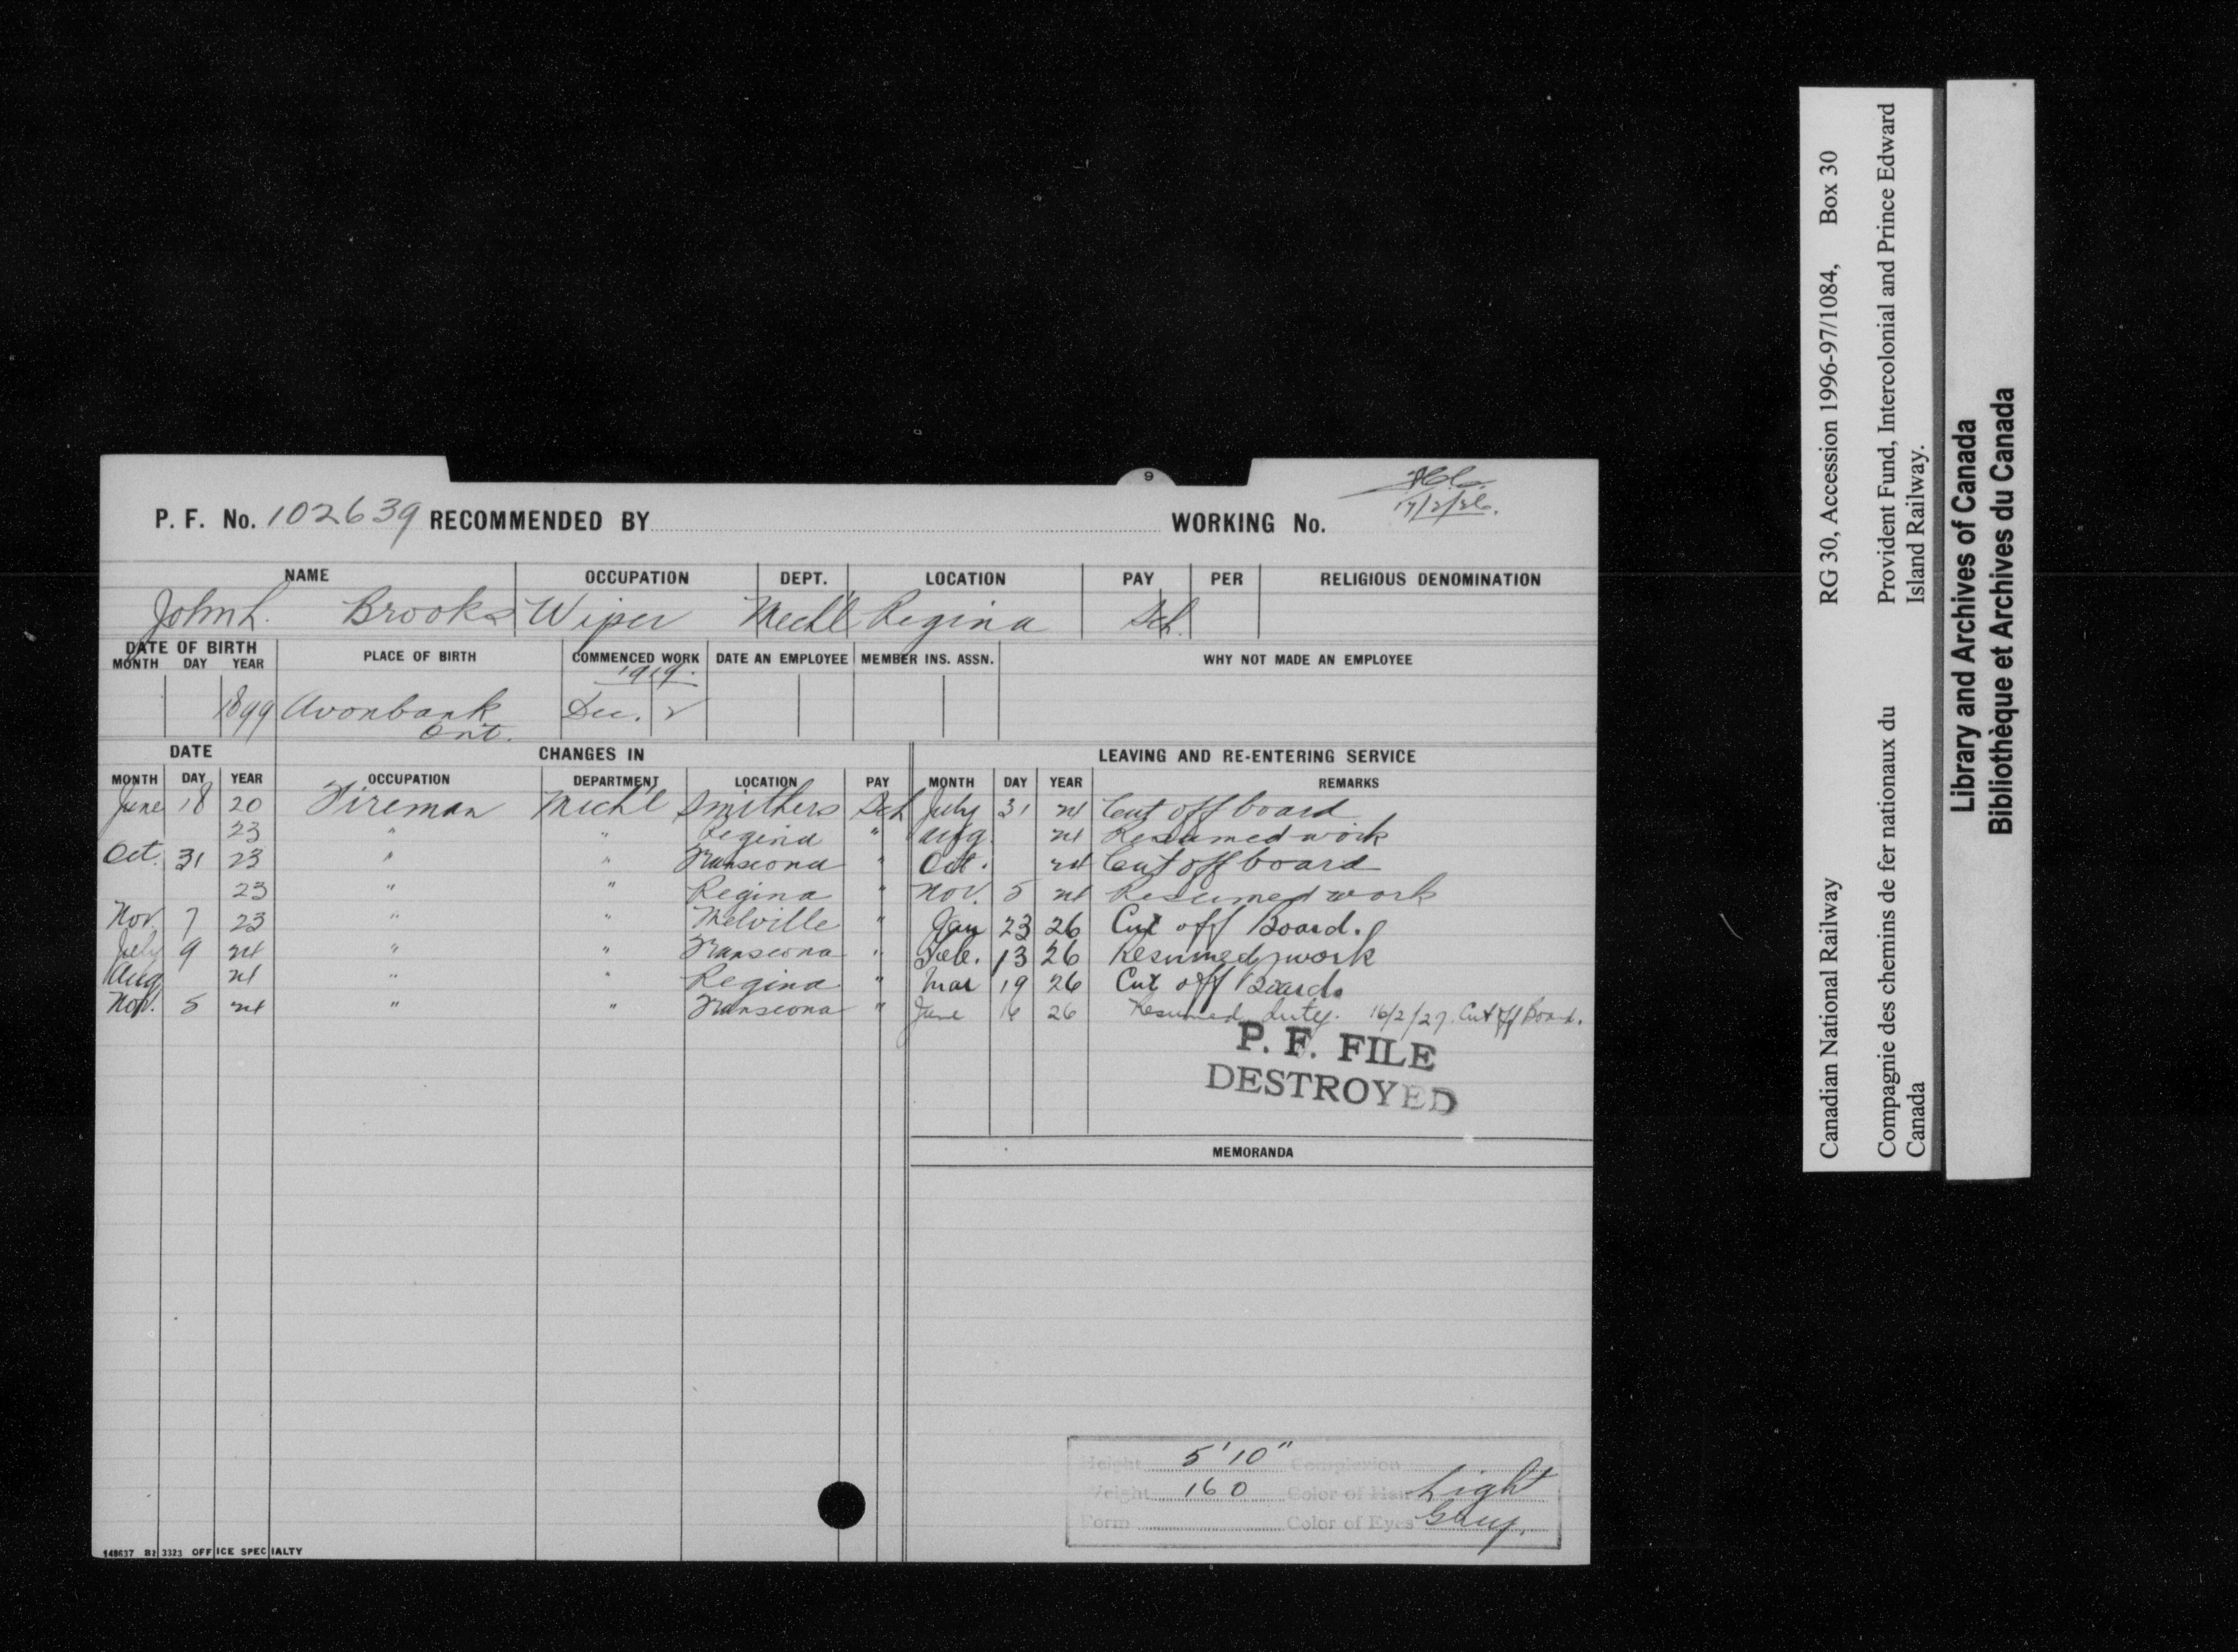 9
17/2/26.
P. F. No. 102639 RECOMMENDED BY WORKING No.
NAME OCCUPATION DEPT. LOCATION PAY PER RELIGIOUS DENOMINATION
John L. Brooks Wiper Mechl Regina Sch.
DATE OF BIRTH PLACE OF BIRTH COMMENCED WORK DATE AN EMPLOYEE MEMBER INS. ASSN. WHY NOT MADE AN EMPLOYEE
MONTH DAY YEAR
1919.
1899 Avonbank Dec. 2
Ont.
DATE CHANGES IN LEAVING AND RE-ENTERING SERVICE
MONTH DAY YEAR OCCUPATION DEPARTMENT LOCATION PAY MONTH DAY YEAR REMARKS
June 18 20 Fireman Mechl Smithers Sch July 31 24 Cut off board
23 " " Regina " Aug. 24 Resumed work
Oct. 31 23 " " Transcona " Oct. 24 Cut off board
23 " " Regina " Nov. 5 24 Resumed work
Nov. 7 23 " " Melville " Jan 23 26 Cut off Board.
July 9 24 " " Transcona " Feb. 13 26 Resumed work
Aug 24 " " Regina " Mar 19 26 Cut off Board.
Nov. 5 24 " " Transcona " June 16 26 Resumed duty. 16/2/27. Cut off Board.
P. F. FILE
DESTROYED
MEMORANDA
Height 5'10" Complexion
Weight 160 Color of Hair Light
Form Color of Eyes Grey.
148637 B2 3323 OFFICE SPECIALTY
Canadian National Railway RG 30, Accession 1996-97/1084, Box 30
Compagnie des chemins de fer nationaux du Provident Fund, Intercolonial and Prince Edward
Canada Island Railway.
Library and Archives of Canada
Bibliothèque et Archives du Canada